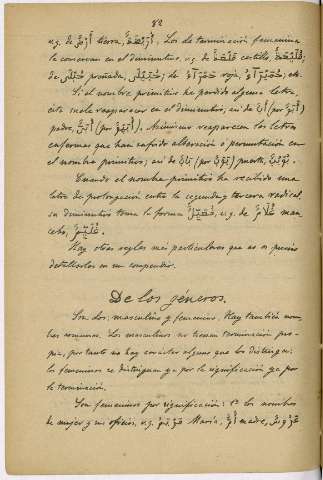 82
v.g. de أَرْضٌ tierra, أُرَيْضَةٌ. Los de terminación femenina
la conservan en el diminutivo, v.g. de
preñada, de roja, etc.
Si el nombre primitivo ha perdido alguna letra,
ésta suele reaparecer en el diminutivo; así de أَبٌ (por أَبَوٌ)
padre, أُبَيٌّ (por أُبَيْوٌ). Asimismo reaparecen las letras
enfermas que han sufrido alteración o permutación en
el nombre primitivo; así de بَابٌ (por بَوَبٌ) puerta, بُوَيْبٌ.
Cuando el nombre primitivo ha recibido una
letra de prolongación entre la segunda y tercera radical,
su diminutivo toma la forma v.g. de غُلَامٌ man-
cebo, غُلَيِّمٌ.
Hay otras reglas más particulares que no es preciso
detallarlas en un compendio.
De los géneros.
Son dos: masculino y femenino. Hay también nom-
bres comunes. Los masculinos no tienen terminación pro-
pia, por tanto no hay carácter alguno que los distinga:
los femeninos se distinguen ya por la significación ya por
la terminación.
Son femeninos por significación: 1º los nombres
de mujer y sus oficios, v.g. مَرْيَمُ María, أُمٌّ madre,